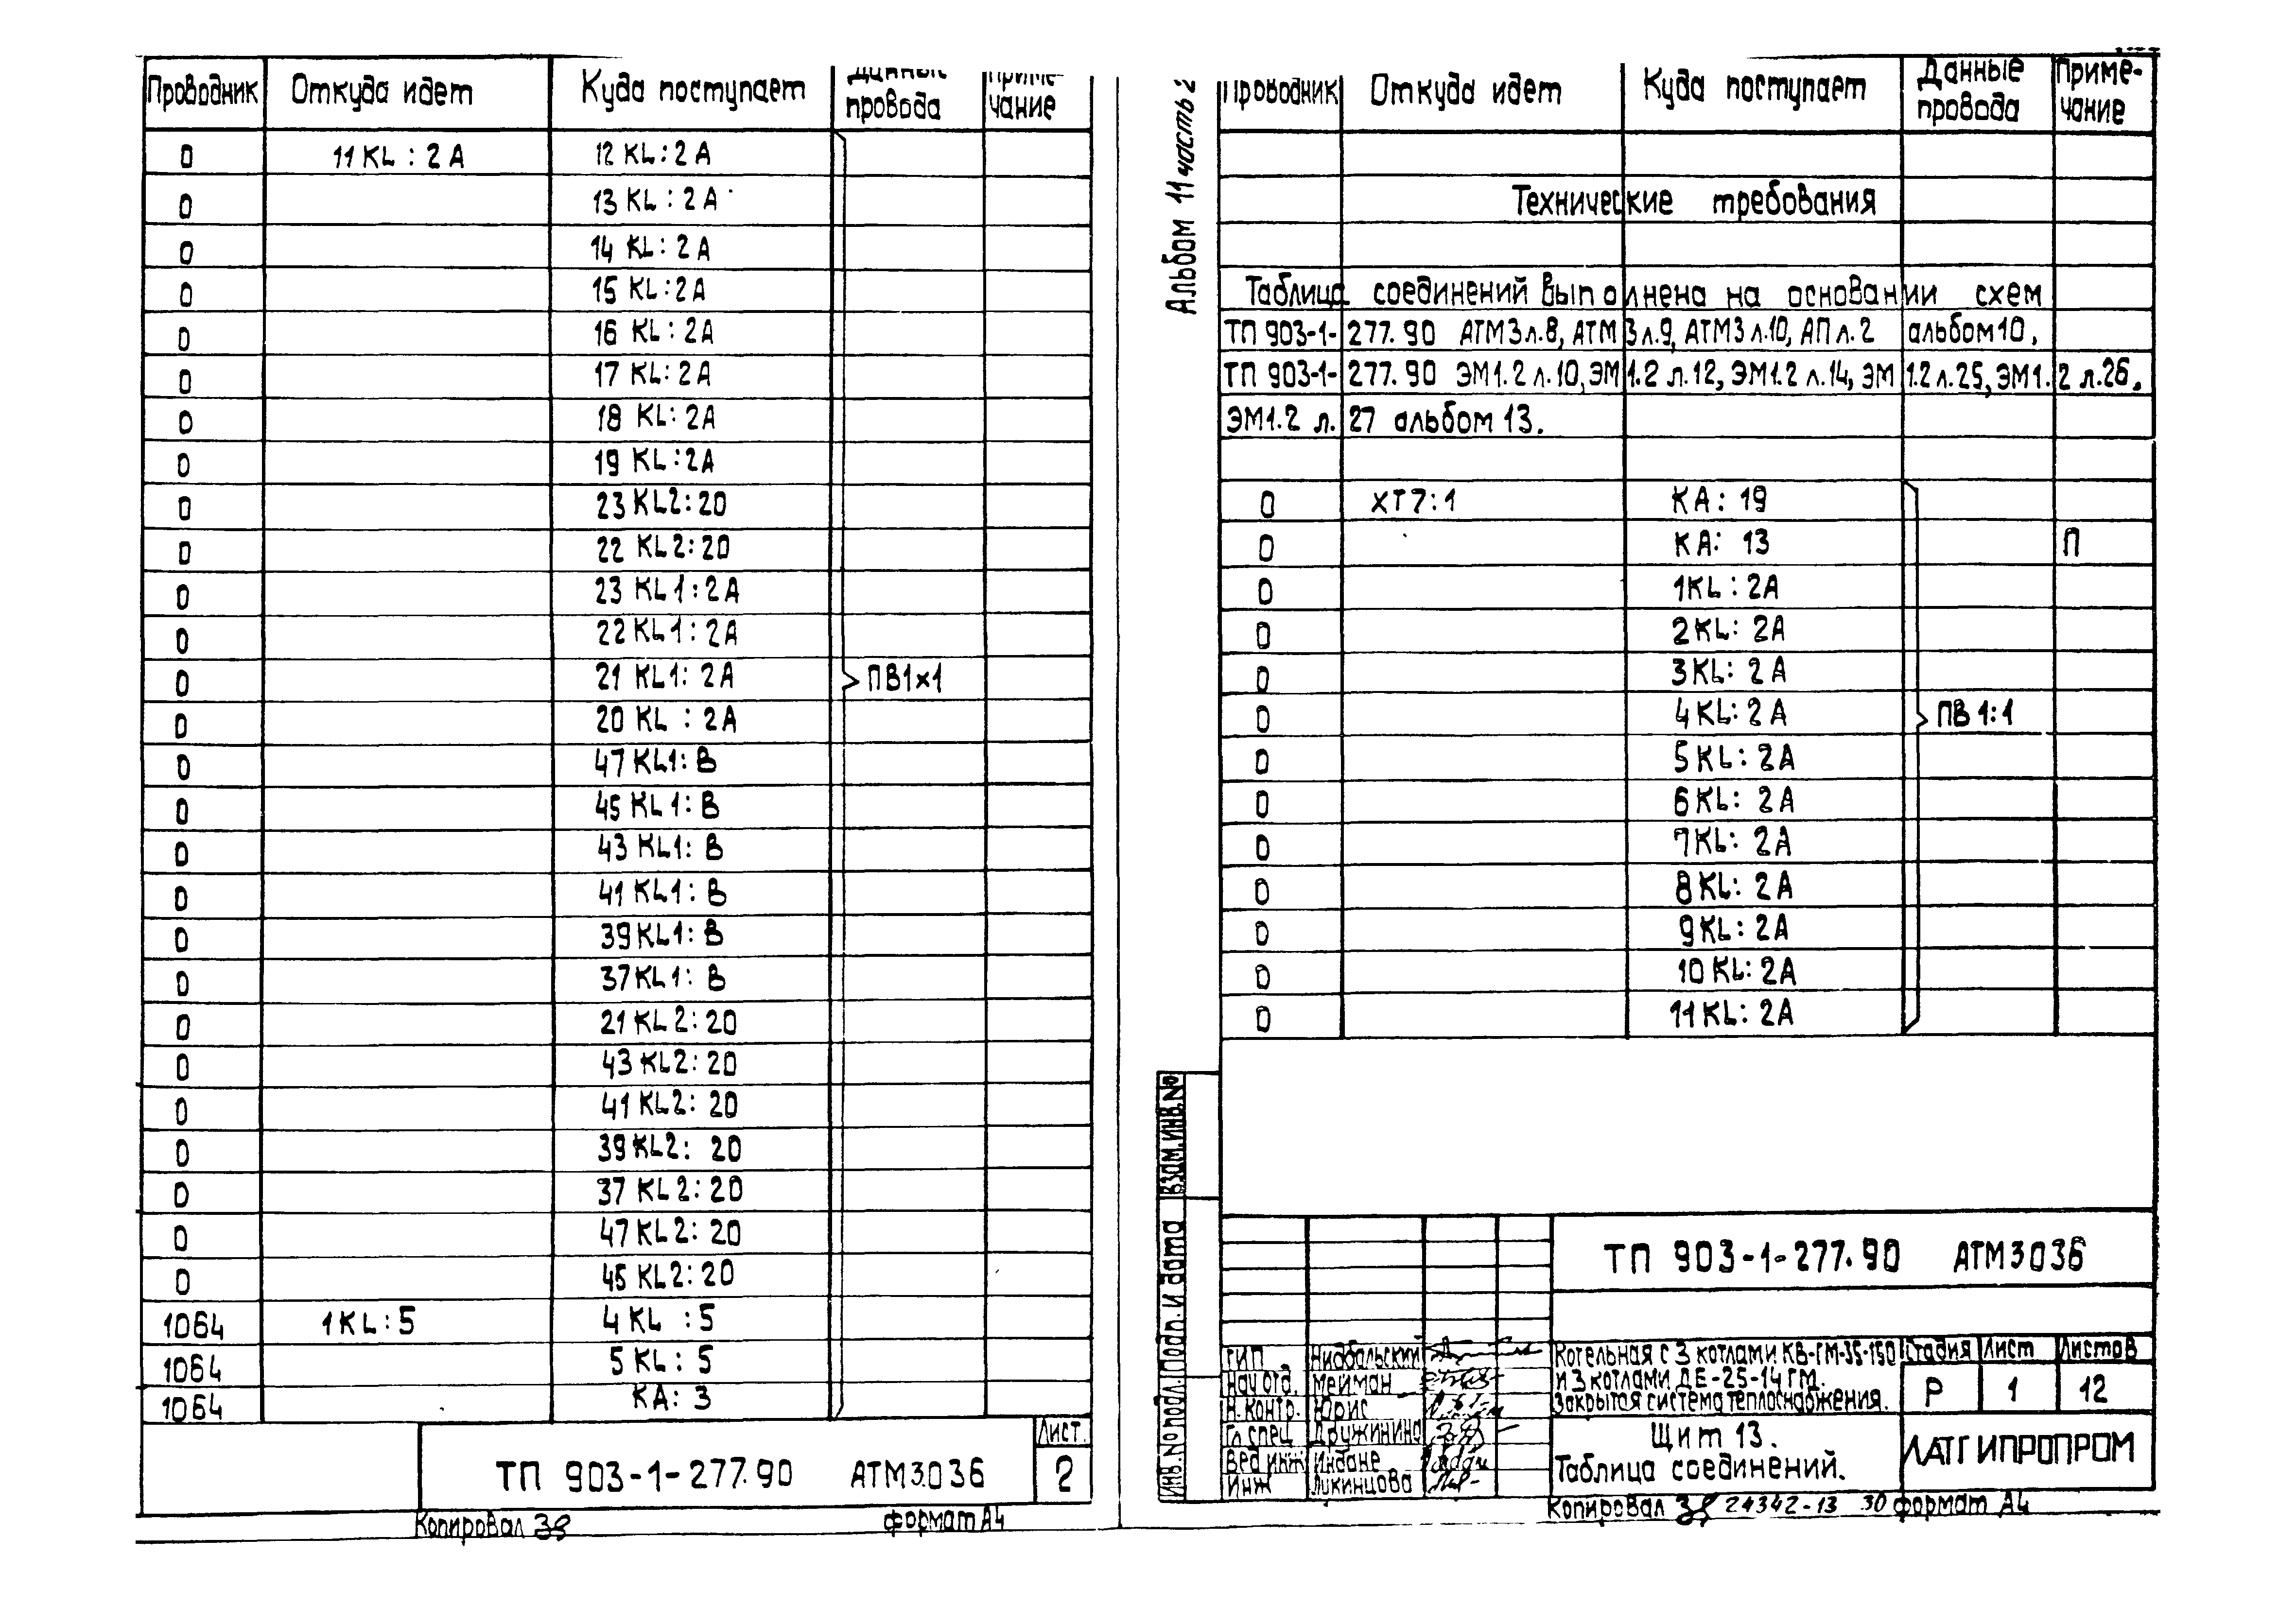 Проводник Откуда идет Куда поступает Данные провода Приме-чание
0 11KL : 2A 12 KL:2A
0 13 KL : 2A
0 14 KL: 2A
0 15 KL:2A
0 16 KL: 2A
0 17 KL:2A
0 18 KL: 2A
0 19 KL:2A
0 23 KL2:20
0 22 KL2:20
0 23 KL1:2A
0 22KL1:2A
0 21 KL1: 2A ПВ1×1
0 20 KL : 2A
0 47 KL1: B
0 45 KL1: B
0 43 KL1: B
0 41 KL1: B
0 39KL1: B
0 37KL1: B
0 21 KL2:20
0 43 KL2:20
0 41 KL2: 20
0 39KL2: 20
0 37 KL2:20
0 47 KL2: 20
0 45 KL2:20
1064 1KL:5 4 KL :5
1064 5 KL: 5
1064 KA: 3
ТП 903-1-277.90 АТМ3.036
Лист.
2
Копировал
формат А4
Альбом 11 часть 2
Проводник Откуда идет Куда поступает Данные провода Приме-чание
Технические требования
Таблица соединений выполнена на основании схем
ТП 903-1-277.90 АТМ3 л.8, АТМ3 л.9, АТМ3 л.10, АП л.2 альбом 10,
ТП 903-1-277.90 ЭМ1.2 л.10, ЭМ1.2 л.12, ЭМ1.2 л.14, ЭМ1.2 л.25, ЭМ1.2 л.26,
ЭМ1.2 л.27 альбом 13.
0 XT7:1 KA: 19
0 KA: 13 П
0 1KL: 2A
0 2KL: 2A
0 3KL: 2A
0 4KL: 2A ПВ 1:1
0 5KL: 2A
0 6KL: 2A
0 7KL: 2A
0 8KL: 2A
0 9KL: 2A
0 10KL:2A
0 11KL: 2A
Взам.инв.№
Подп. и дата
Инв.№ подл.
ТП 903-1-277.90 АТМ3036
ГИП Нидбальский
Нач отд. Мейман
Н. контр. Юрис
Гл спец Дружинина
Вед инж Индане
Инж Ликинцова
Котельная с 3 котлами КВ-ГМ-35-150
и 3 котлами ДЕ-25-14ГМ.
Закрытая система теплоснабжения.
Стадия Лист Листов
Р 1 12
Щит 13.
Таблица соединений.
ЛАТГИПРОПРОМ
Копировал 24342-13 30 формат А4